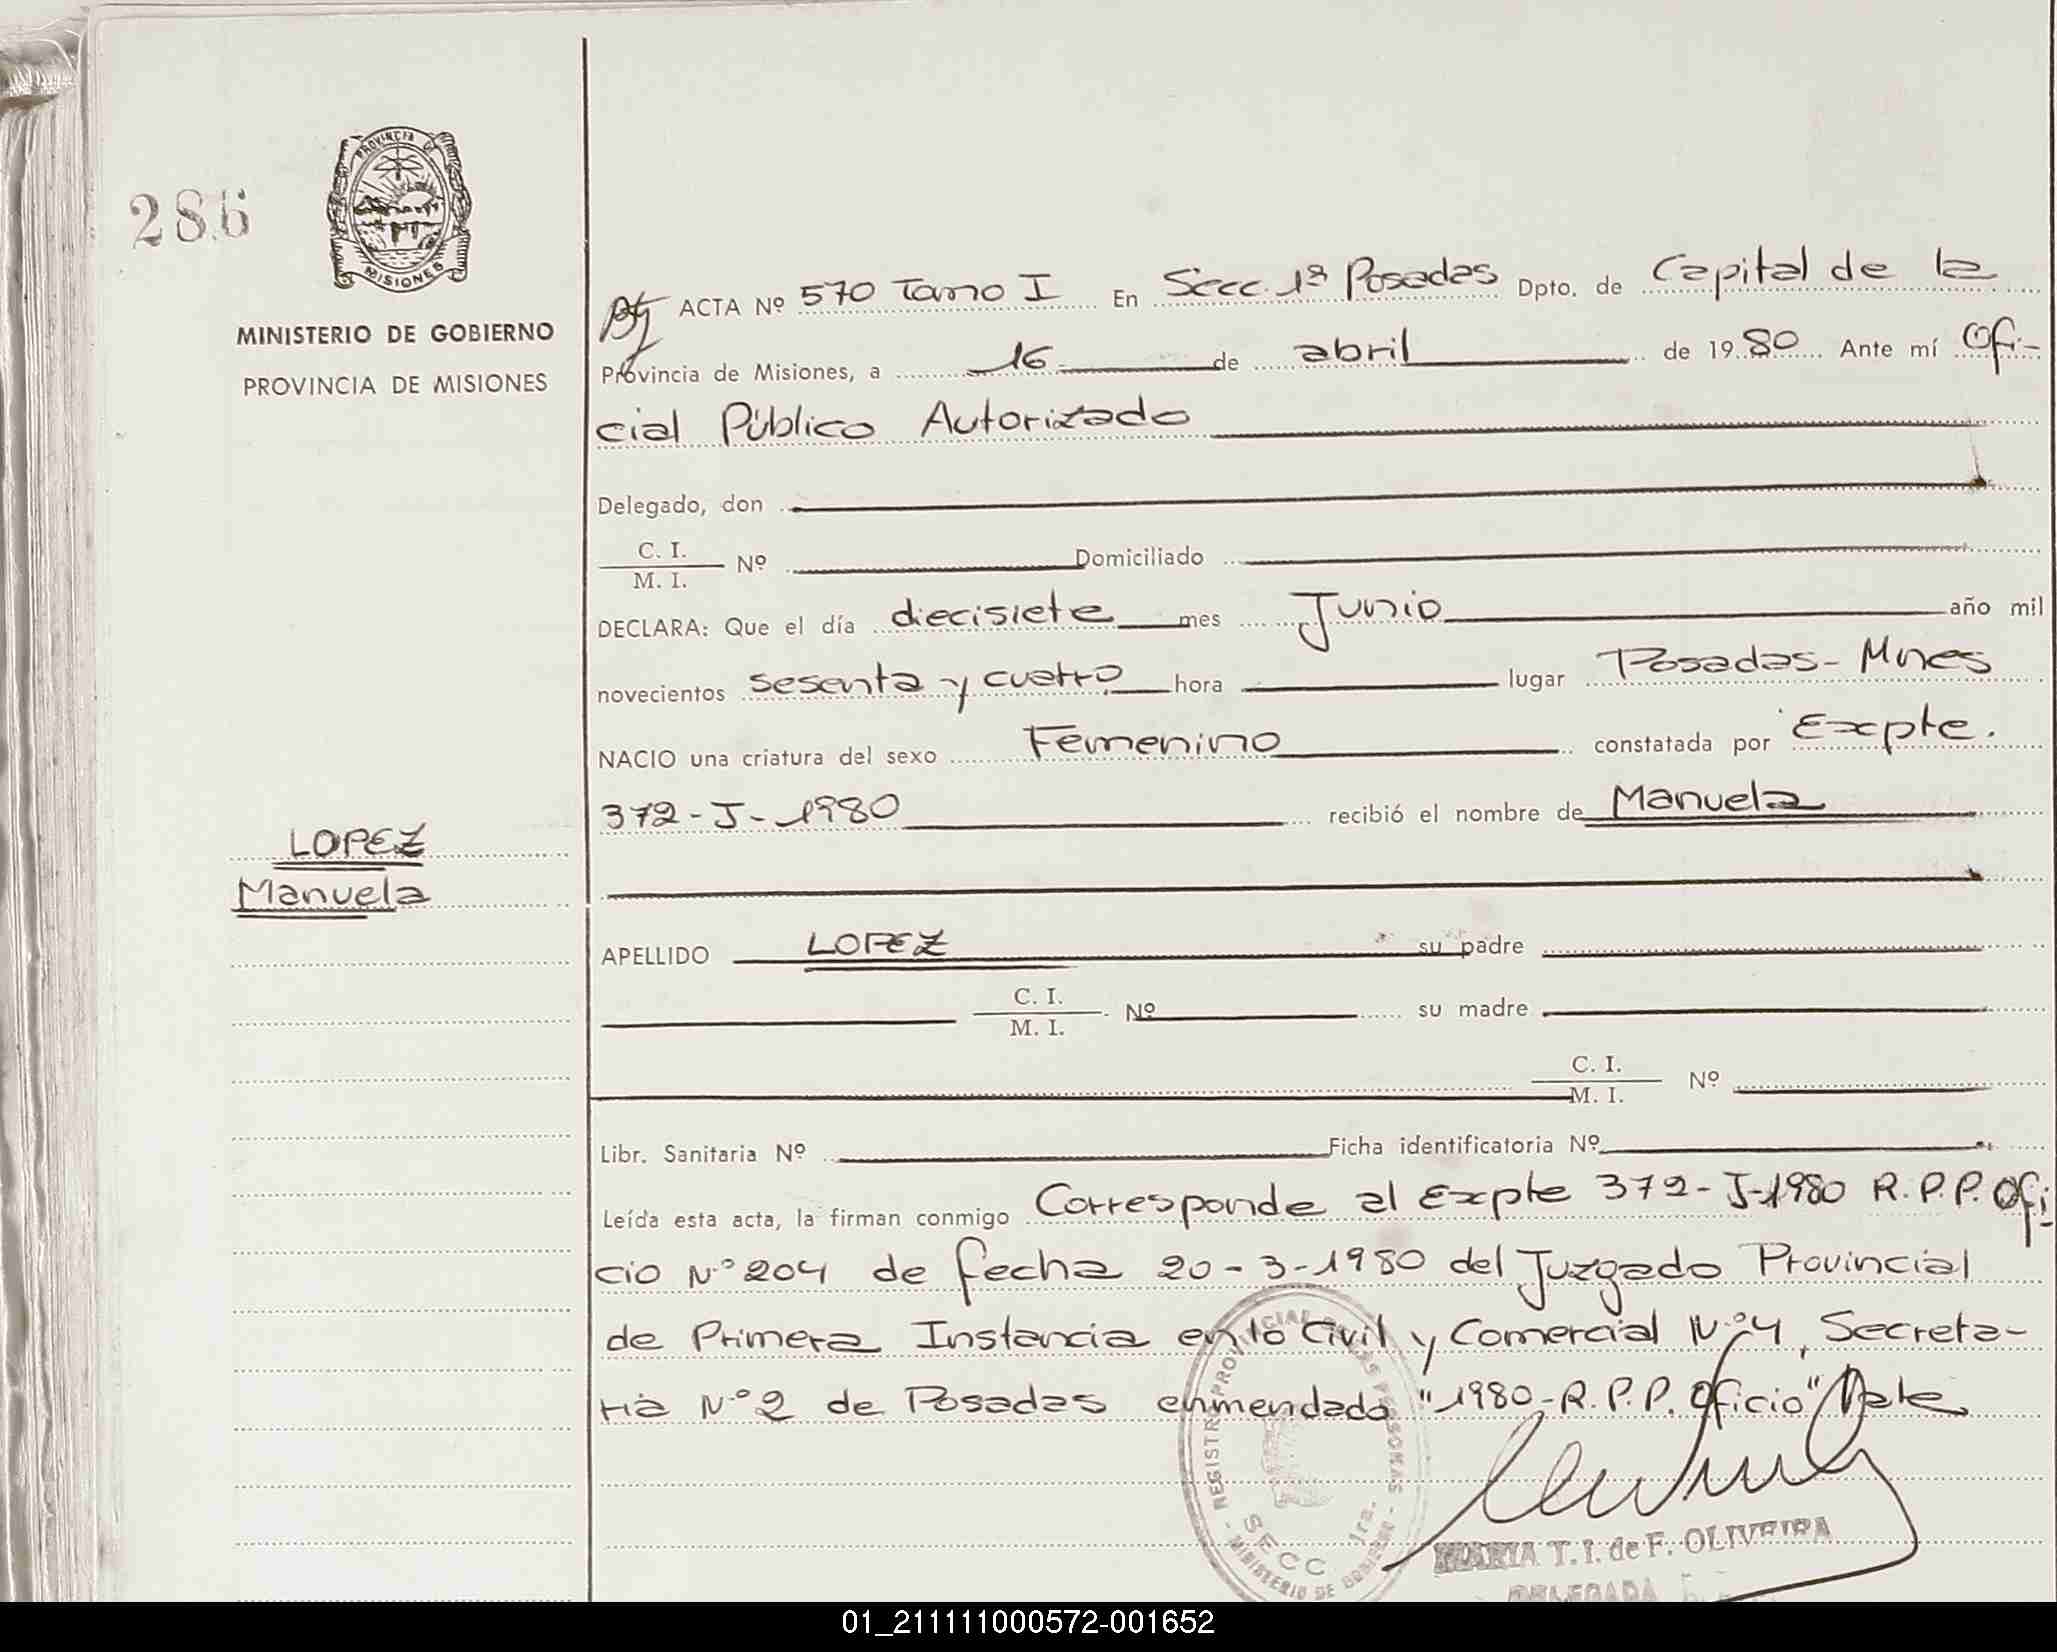 286
PROVINCIA DE
MISIONES
MINISTERIO DE GOBIERNO
PROVINCIA DE MISIONES
LOPEZ
Manuela
ACTA Nº 570 Tomo I En Secc. 1ª Posadas Dpto. de Capital de la
Provincia de Misiones, a 16 de abril de 1980 Ante mí Ofi-
cial Público Autorizado
Delegado, don
C. I.
M. I. Nº Domiciliado
DECLARA: Que el día diecisiete mes Junio año mil
novecientos sesenta y cuatro hora lugar Posadas - Mnes
NACIO una criatura del sexo Femenino constatada por Expte.
372-J-1980 recibió el nombre de Manuela
APELLIDO LOPEZ su padre
C. I.
M. I. Nº su madre
C. I.
M. I. Nº
Libr. Sanitaria Nº Ficha identificatoria Nº
Leída esta acta, la firman conmigo Corresponde al Expte 372-J-1980 R.P.P. Ofi-
cio Nº 204 de fecha 20-3-1980 del Juzgado Provincial
de Primera Instancia en lo Civil y Comercial Nº 4, Secreta-
ria Nº 2 de Posadas enmendado "1980-R.P.P. Oficio" Vale
REGISTRO PROVINCIAL DE LAS PERSONAS
SECC 1ra.
MINISTERIO DE GOBIERNO
MARIA T. I. de F. OLIVEIRA
DELEGADA
01_211111000572-001652